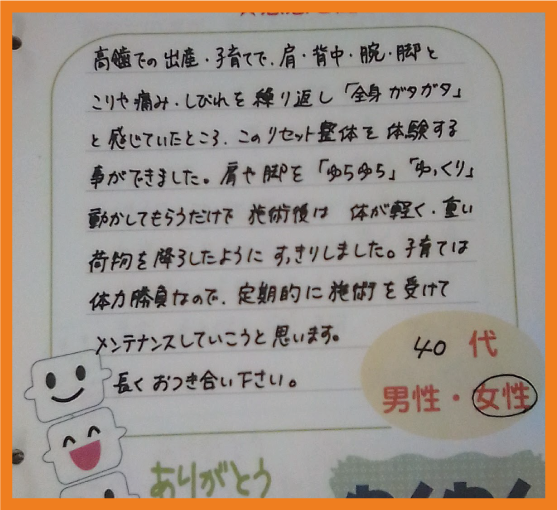 高齢での出産・子育てで、肩・背中・腕・脚と
こりや痛み・しびれを繰り返し「全身ガタガタ」
と感じていたところ、このリセット整体を体験する
事ができました。肩や脚を「ゆらゆら」「ゆっくり」
動かしてもらうだけで 施術後は 体が軽く、重い
荷物を降ろしたように すっきりしました。子育ては
体力勝負なので、定期的に施術を受けて
メンテナンスしていこうと思います。
長くおつき合い下さい。
40代
男性・女性
ありがとう